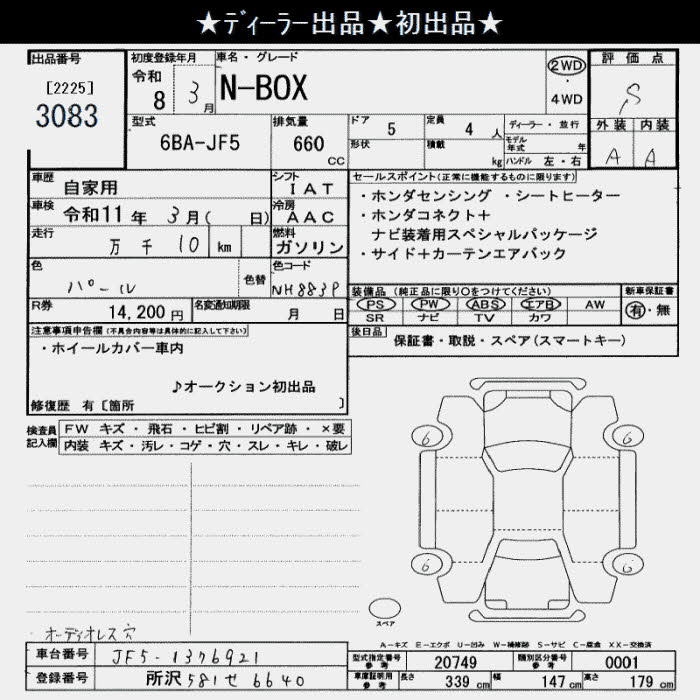 ★ディーラー出品★初出品★
出品番号
[2225]
3083
初度登録年月
令和
8 3月
車名・グレード
N-BOX
2WD
・
4WD
評価点
S
外装 内装
A A
型式
6BA-JF5
排気量
660
CC
ドア
5
定員
4 人
形状
積載
kg
ディーラー・並行
モデル年式 年
ハンドル 左・右
車歴
自家用
シフト
IAT
車検
令和11年 3月( 日)
冷房
AAC
走行
万 千 10 km
燃料
ガソリン
色
パール
色替
色コード
NH883P
R券
14,200円
名変通知期限
月 日
セールスポイント(正常に機能するものに限ります)
・ホンダセンシング ・シートヒーター
・ホンダコネクト+
ナビ装着用スペシャルパッケージ
・サイド+カーテンエアバック
装備品 (純正品に限り○をつけてください)
PS PW ABS エアB AW
SR ナビ TV カワ
新車保証書
有・無
後日品
保証書・取説・スペア(スマートキー)
注意事項申告欄 (不具合内容等は具体的に記入して下さい)
・ホイールカバー車内
♪オークション初出品
修復歴 有〔箇所 〕
検査員
記入欄
FW キズ ・ 飛石 ・ ヒビ割 ・ リペア跡 ・ ×要
内装 キズ ・ 汚レ ・ コゲ ・ 穴 ・ スレ ・ キレ ・ 破レ
6 6
6 6
スペア
オーディオレス 穴
A-キズ E-エクボ U-凹み W-補修跡 S-サビ C-腐食 XX-交換済
車台番号
JF5-1376921
登録番号
所沢 581せ 6640
型式指定番号
参考
20749
類別区分番号
参考
0001
車庫証明用
参考
長さ 339 cm 幅 147 cm 高さ 179 cm